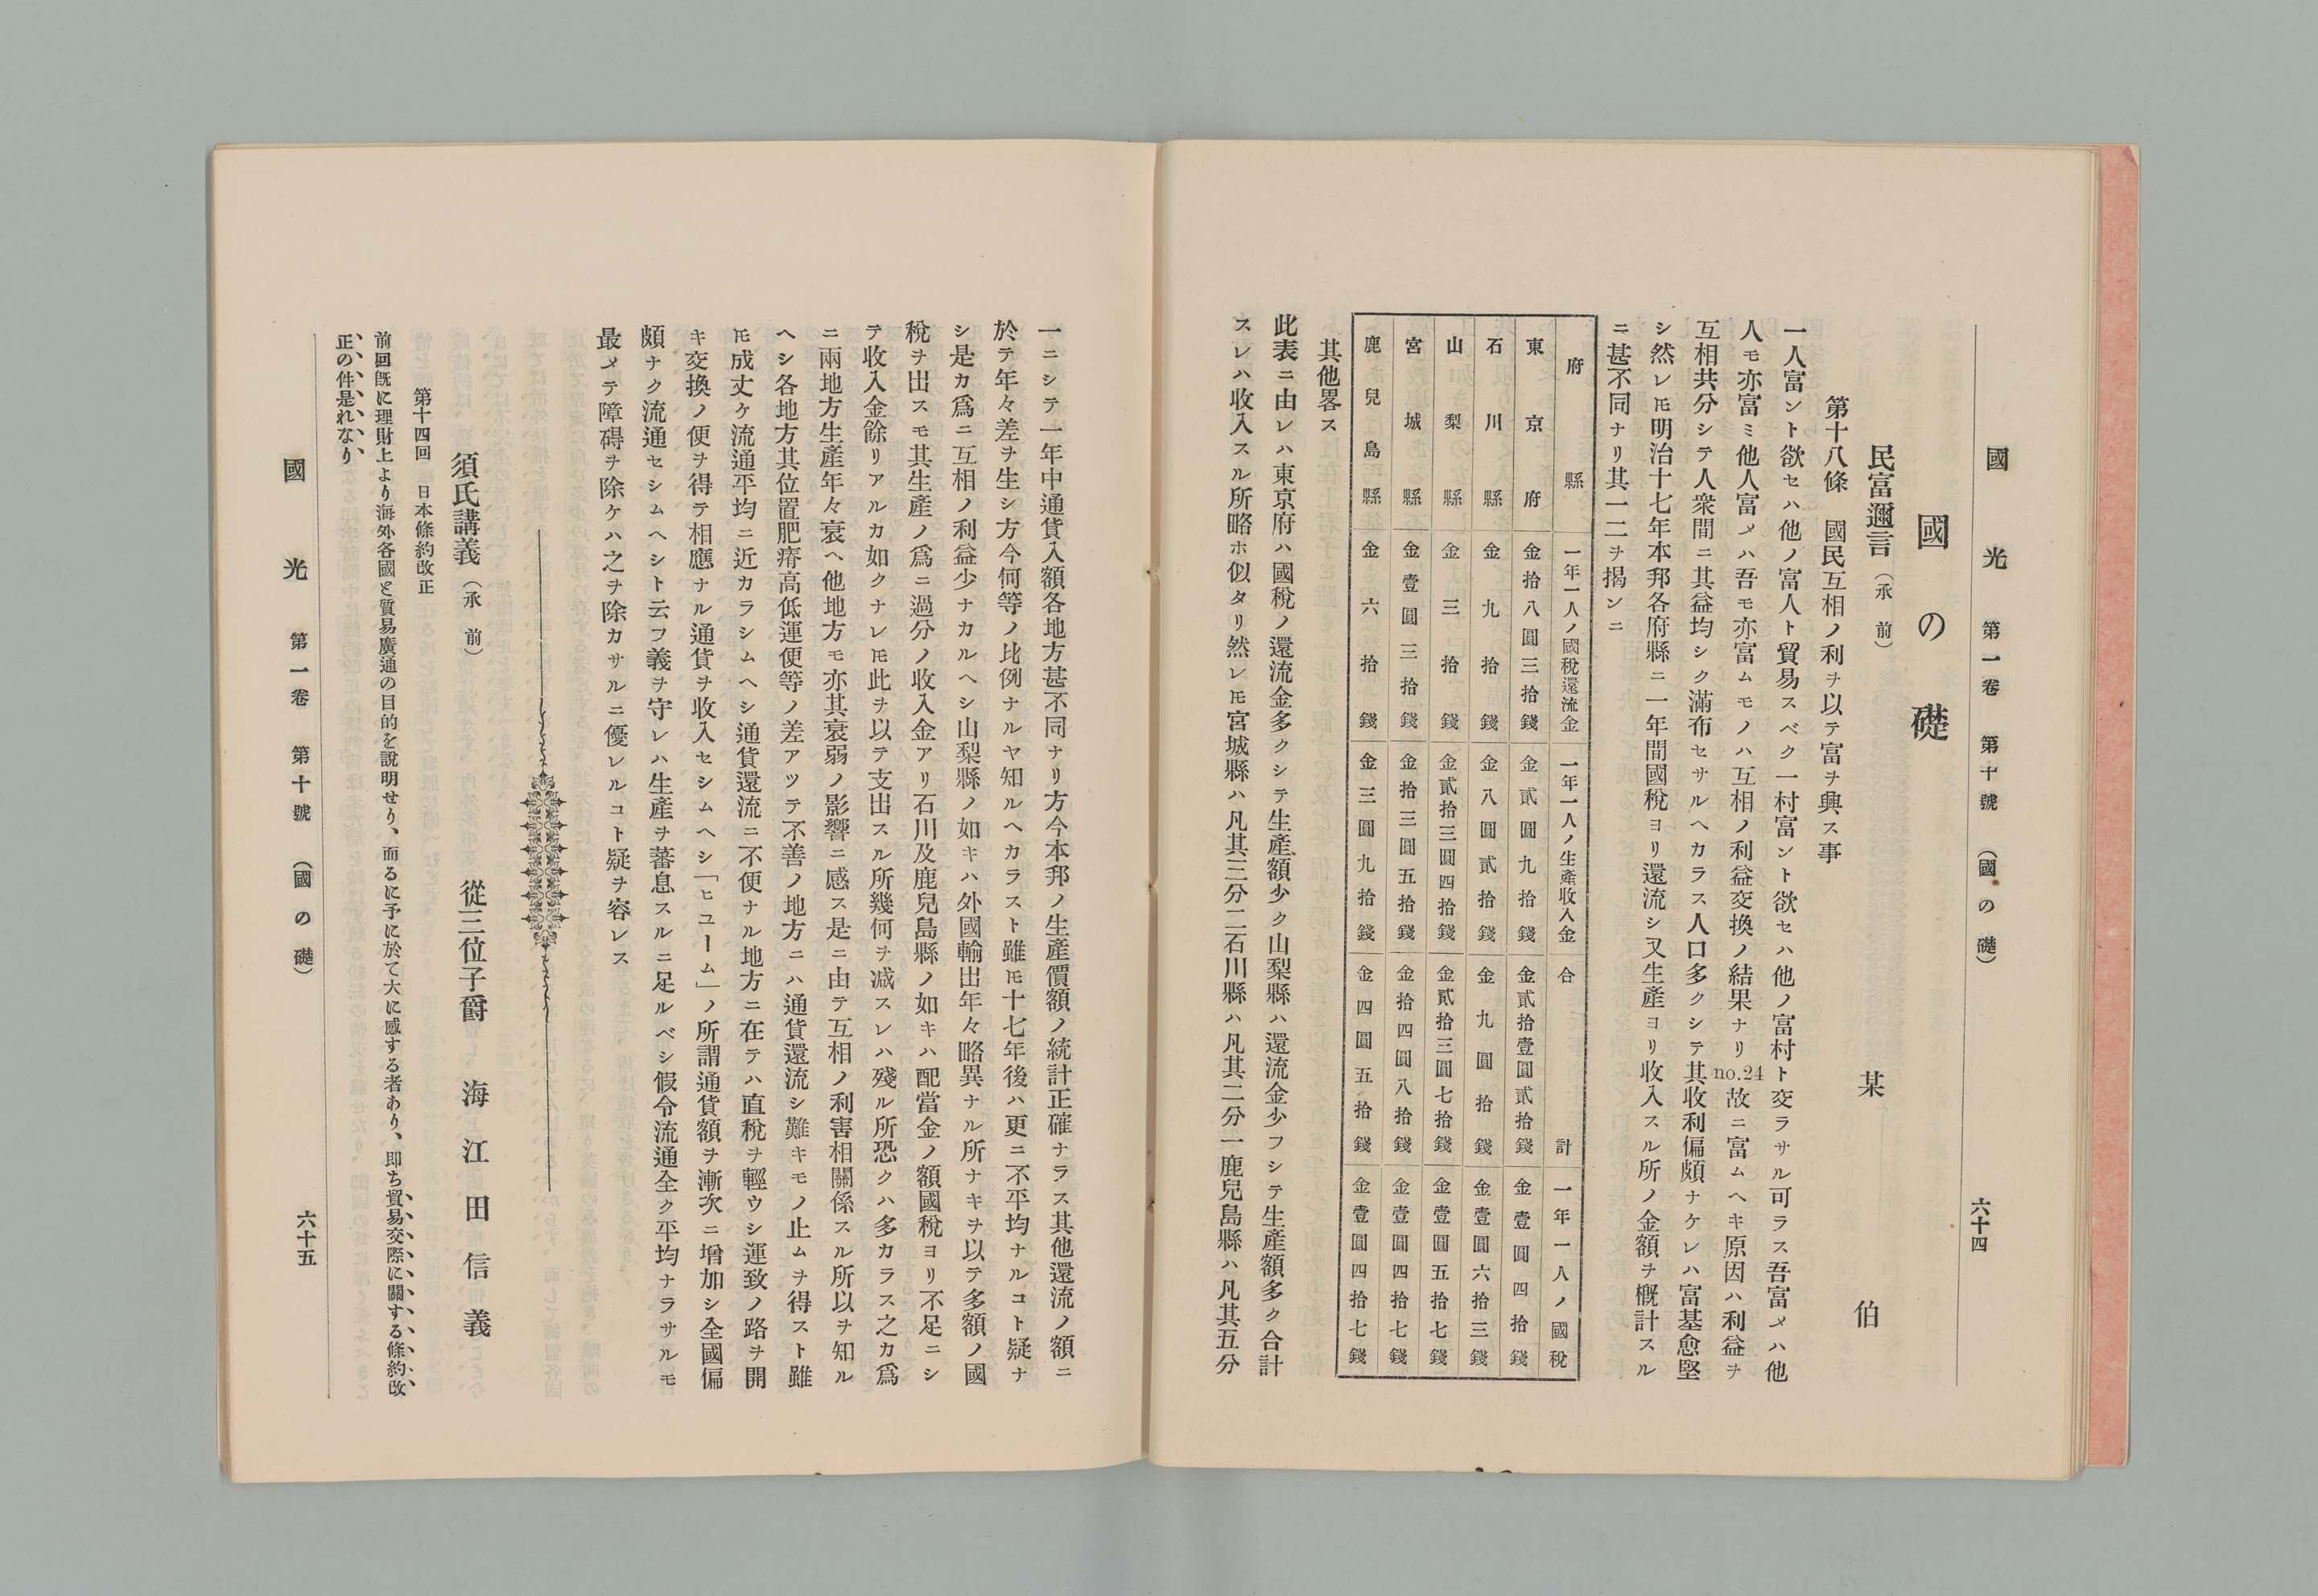 國光 第一卷 第十號 (國の礎) 六十四
國の礎
民富邇言 (承前) 某伯
第十八條 國民互相ノ利ヲ以テ富ヲ興ス事
一人富ント欲セハ他ノ富人ト貿易スベク一村富ント欲セハ他ノ富村ト交ラサル可ラス吾富メハ他
人モ亦富ミ他人富メハ吾モ亦富ムモノハ互相ノ利益交換ノ結果ナリ no.24 故ニ富ムヘキ原因ハ利益ヲ
互相共分シテ人衆間ニ其益均シク滿布セサルヘカラス人口多クシテ其收利偏頗ナケレハ富基愈堅
シ然レ𪜈明治十七年本邦各府縣ニ一年間國稅ヨリ還流シ又生產ヨリ收入スル所ノ金額ヲ槪計スル
ニ甚不同ナリ其一二ヲ揭ンニ
府縣 一年一人ノ國稅還流金 一年一人ノ生產收入金 合計 一年一人ノ國稅
東京府 金拾八圓三拾錢 金貳圓九拾錢 金貳拾壹圓貳拾錢 金壹圓四拾錢
石川縣 金九拾錢 金八圓貳拾錢 金九圓拾錢 金壹圓六拾三錢
山梨縣 金三拾錢 金貳拾三圓四拾錢 金貳拾三圓七拾錢 金壹圓五拾七錢
宮城縣 金壹圓三拾錢 金拾三圓五拾錢 金拾四圓八拾錢 金壹圓四拾七錢
鹿兒島縣 金六拾錢 金三圓九拾錢 金四圓五拾錢 金壹圓四拾七錢
其他畧ス
此表ニ由レハ東京府ハ國稅ノ還流金多クシテ生產額少ク山梨縣ハ還流金少フシテ生產額多ク合計
スレハ收入スル所略ホ似タリ然レ𪜈宮城縣ハ凡其三分二石川縣ハ凡其二分一鹿兒島縣ハ凡其五分
一ニシテ一年中通貨入額各地方甚不同ナリ方今本邦ノ生產價額ノ統計正確ナラス其他還流ノ額ニ
於テ年々差ヲ生シ方今何等ノ比例ナルヤ知ルヘカラスト雖𪜈十七年後ハ更ニ不平均ナルコト疑ナ
シ是カ爲ニ互相ノ利益少ナカルヘシ山梨縣ノ如キハ外國輸出年々略異ナル所ナキヲ以テ多額ノ國
稅ヲ出スモ其生產ノ爲ニ過分ノ收入金アリ石川及鹿兒島縣ノ如キハ配當金ノ額國稅ヨリ不足ニシ
テ收入金餘リアルカ如クナレ𪜈此ヲ以テ支出スル所幾何ヲ減スレハ殘ル所恐クハ多カラス之カ爲
ニ兩地方生產年々衰ヘ他地方モ亦其衰弱ノ影響ニ感ス是ニ由テ互相ノ利害相關係スル所以ヲ知ル
ヘシ各地方其位置肥瘠高低運便等ノ差アツテ不善ノ地方ニハ通貨還流シ難キモノ止ムヲ得スト雖
𪜈成丈ケ流通平均ニ近カラシムヘシ通貨還流ニ不便ナル地方ニ在テハ直稅ヲ輕ウシ運致ノ路ヲ開
キ交換ノ便ヲ得テ相應ナル通貨ヲ收入セシムヘシ「モユーム」ノ所謂通貨額ヲ漸次ニ增加シ全國偏
頗ナク流通セシムヘシト云フ義ヲ守レハ生產ヲ蕃息スルニ足ルベシ假令流通全ク平均ナラサルモ
最メテ障碍ヲ除ケハ之ヲ除カサルニ優レルコト疑ヲ容レス
須氏講義 (承前) 從三位子爵 海江田信義
第十四回 日本條約改正
前回旣に理財上より海外各國と貿易廣通の目的を說明せり、而るに予に於て大に感する者あり、即ち貿易交際に關する條約改
正の件是れなり
國光 第一卷 第十號 (國の礎) 六十五